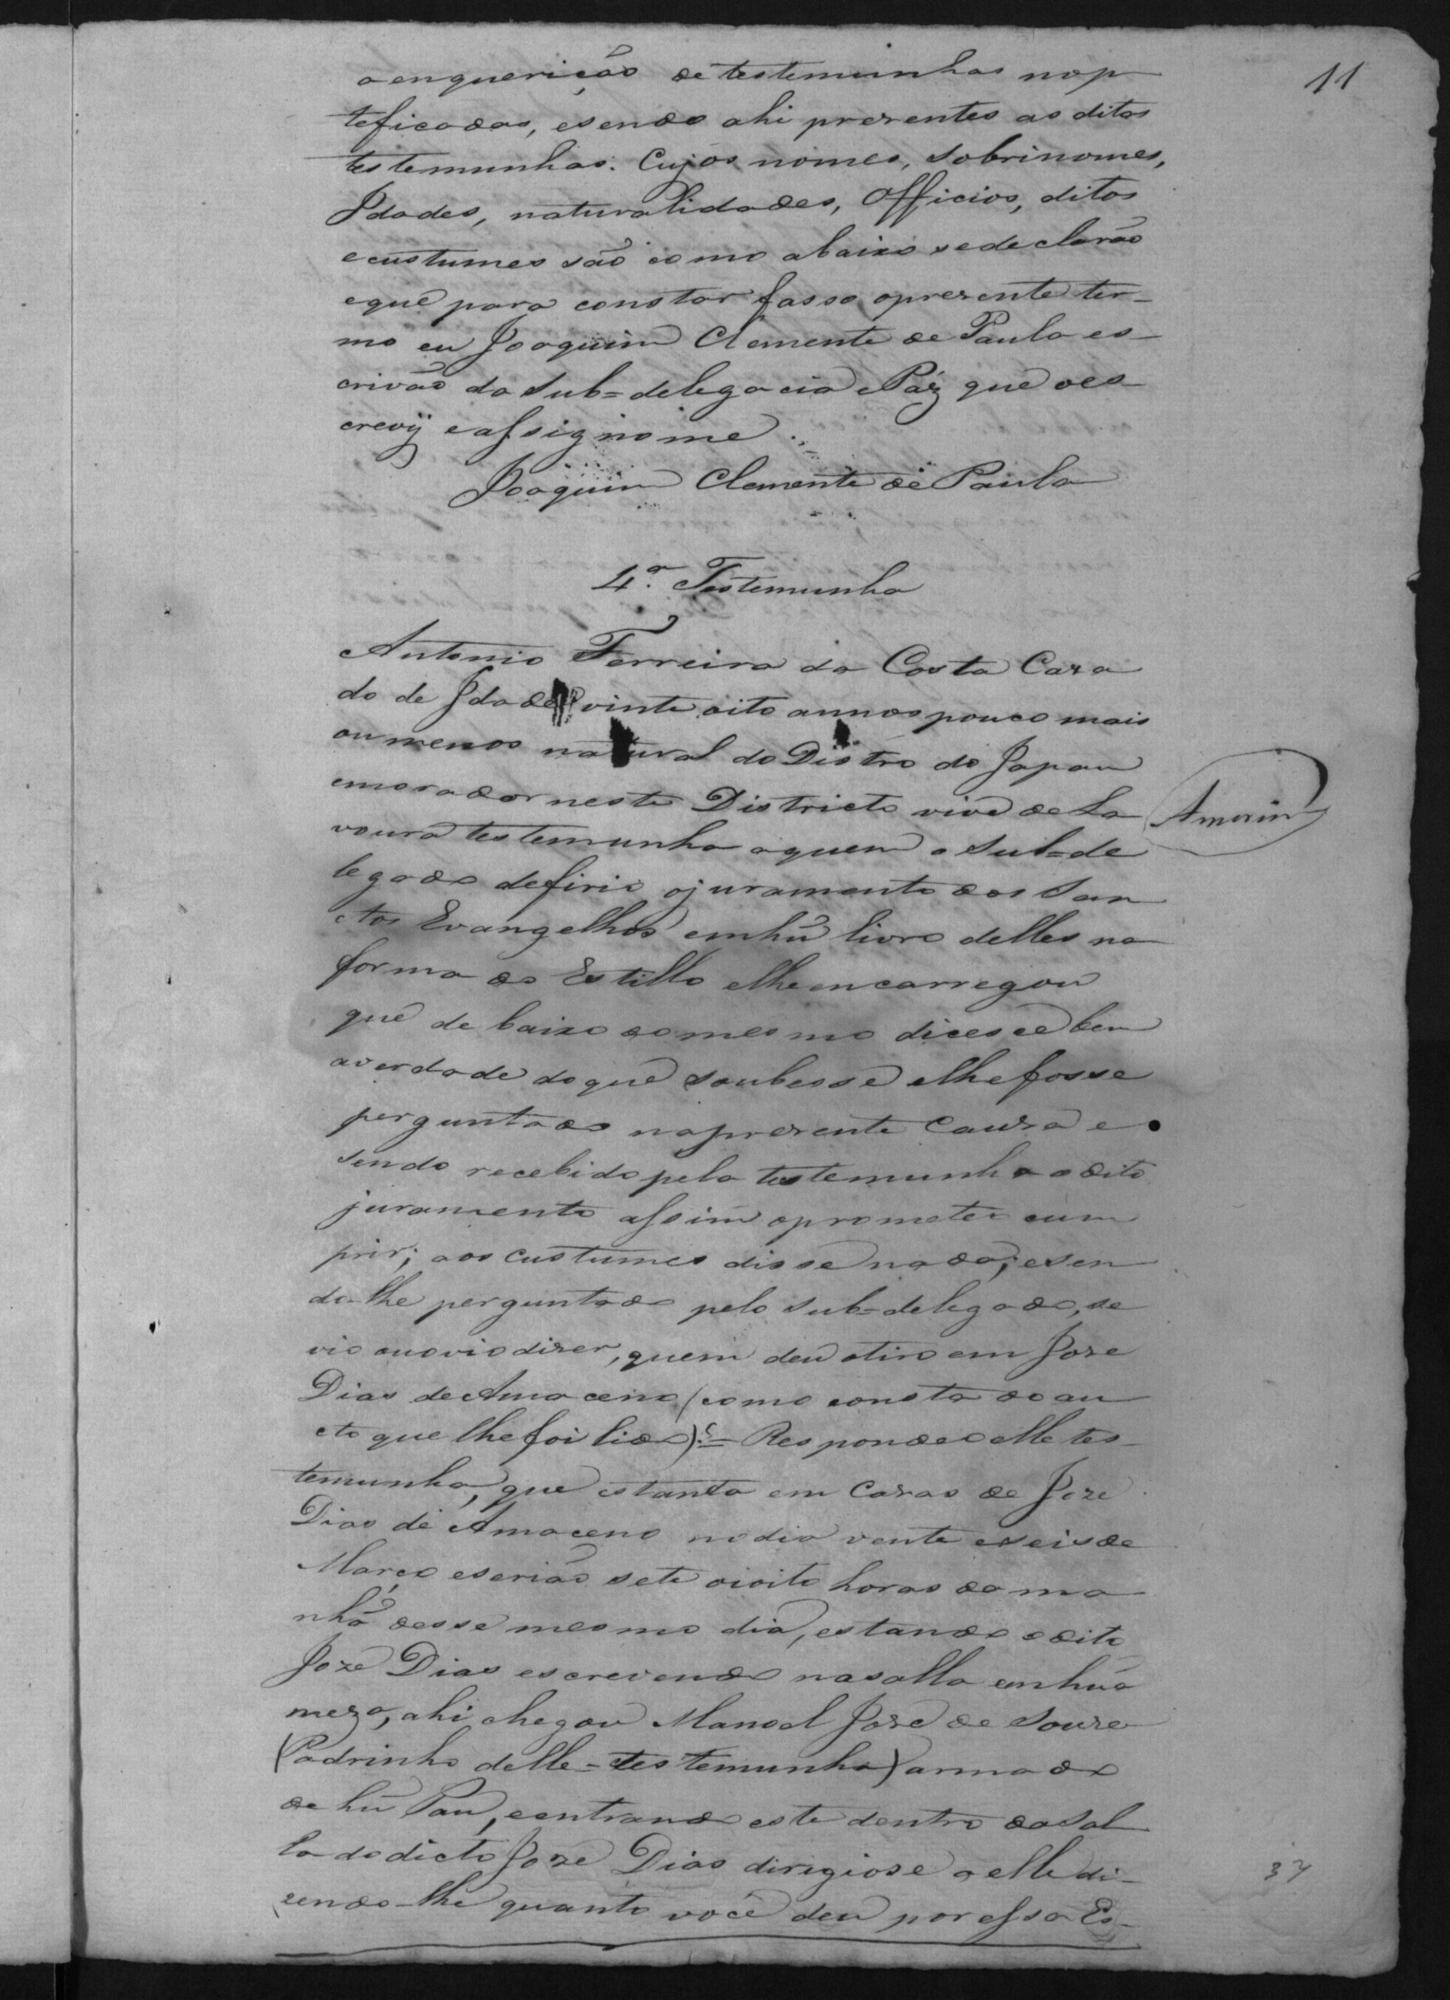 11
a enquerição de testemunhas nop
teficadas, esendo ahi prezentes as ditas
testemunhas. Cujos nomes, Sobrinomes,
Idades, naturalidades, Officios, ditos
ecustumes são como abaixo sedeclarão
eque para constar fasso oprezente ter-
mo eu Joaquim Clemente de Paula es-
crivão da Sub=delegacia ePáz que oes-
crevÿ eassignome.
Joaquim Clemente de Paula
4.ª Testemunha
Antonio Ferreira da Costa Caza
do de Idade vinte oito annos pouco mais
oumenos natural do Distro do Japau
emorador neste Districto vive de La
voura testemunha aquem o Sub=de
legado defirio ojuramento dos San
ctos Evangelhos emhũ livro delles na
forma do Estillo elhe encarregou
que debaixo domesmo dicesce bem
averdade doque soubesse elhefosse
perguntado naprezente Cauza e
sendo recebido pela testemunha odito
juramento assim oprometeo cum
prir; aos custumes disse nada; esen
do-lhe perguntado pelo Sub=delegado, se
vio ouovio dizer, quem deu otiro em Joze
Dias deAmaceno (como consta do au
cto que lhefoi lido):= Respondeo elle tes-
temunha, que estanto em Cazas de Joze
Dias de Amaceno nodia vente eseis de
Março eserião sete oioito horas da ma
nhã desse mesmo dia, estando odito
Joze Dias escrevendo nasalla emhũa
meza, ahi chegou Manoel Joze de Souza
(Padrinho delle-testemunha) armado
de hũ Pau, eentrando este dentro daSal
la dodicto Joze Dias dirigiose a elle di-
zendo-lhe quanto você deu por essa Es-
Amorim
37